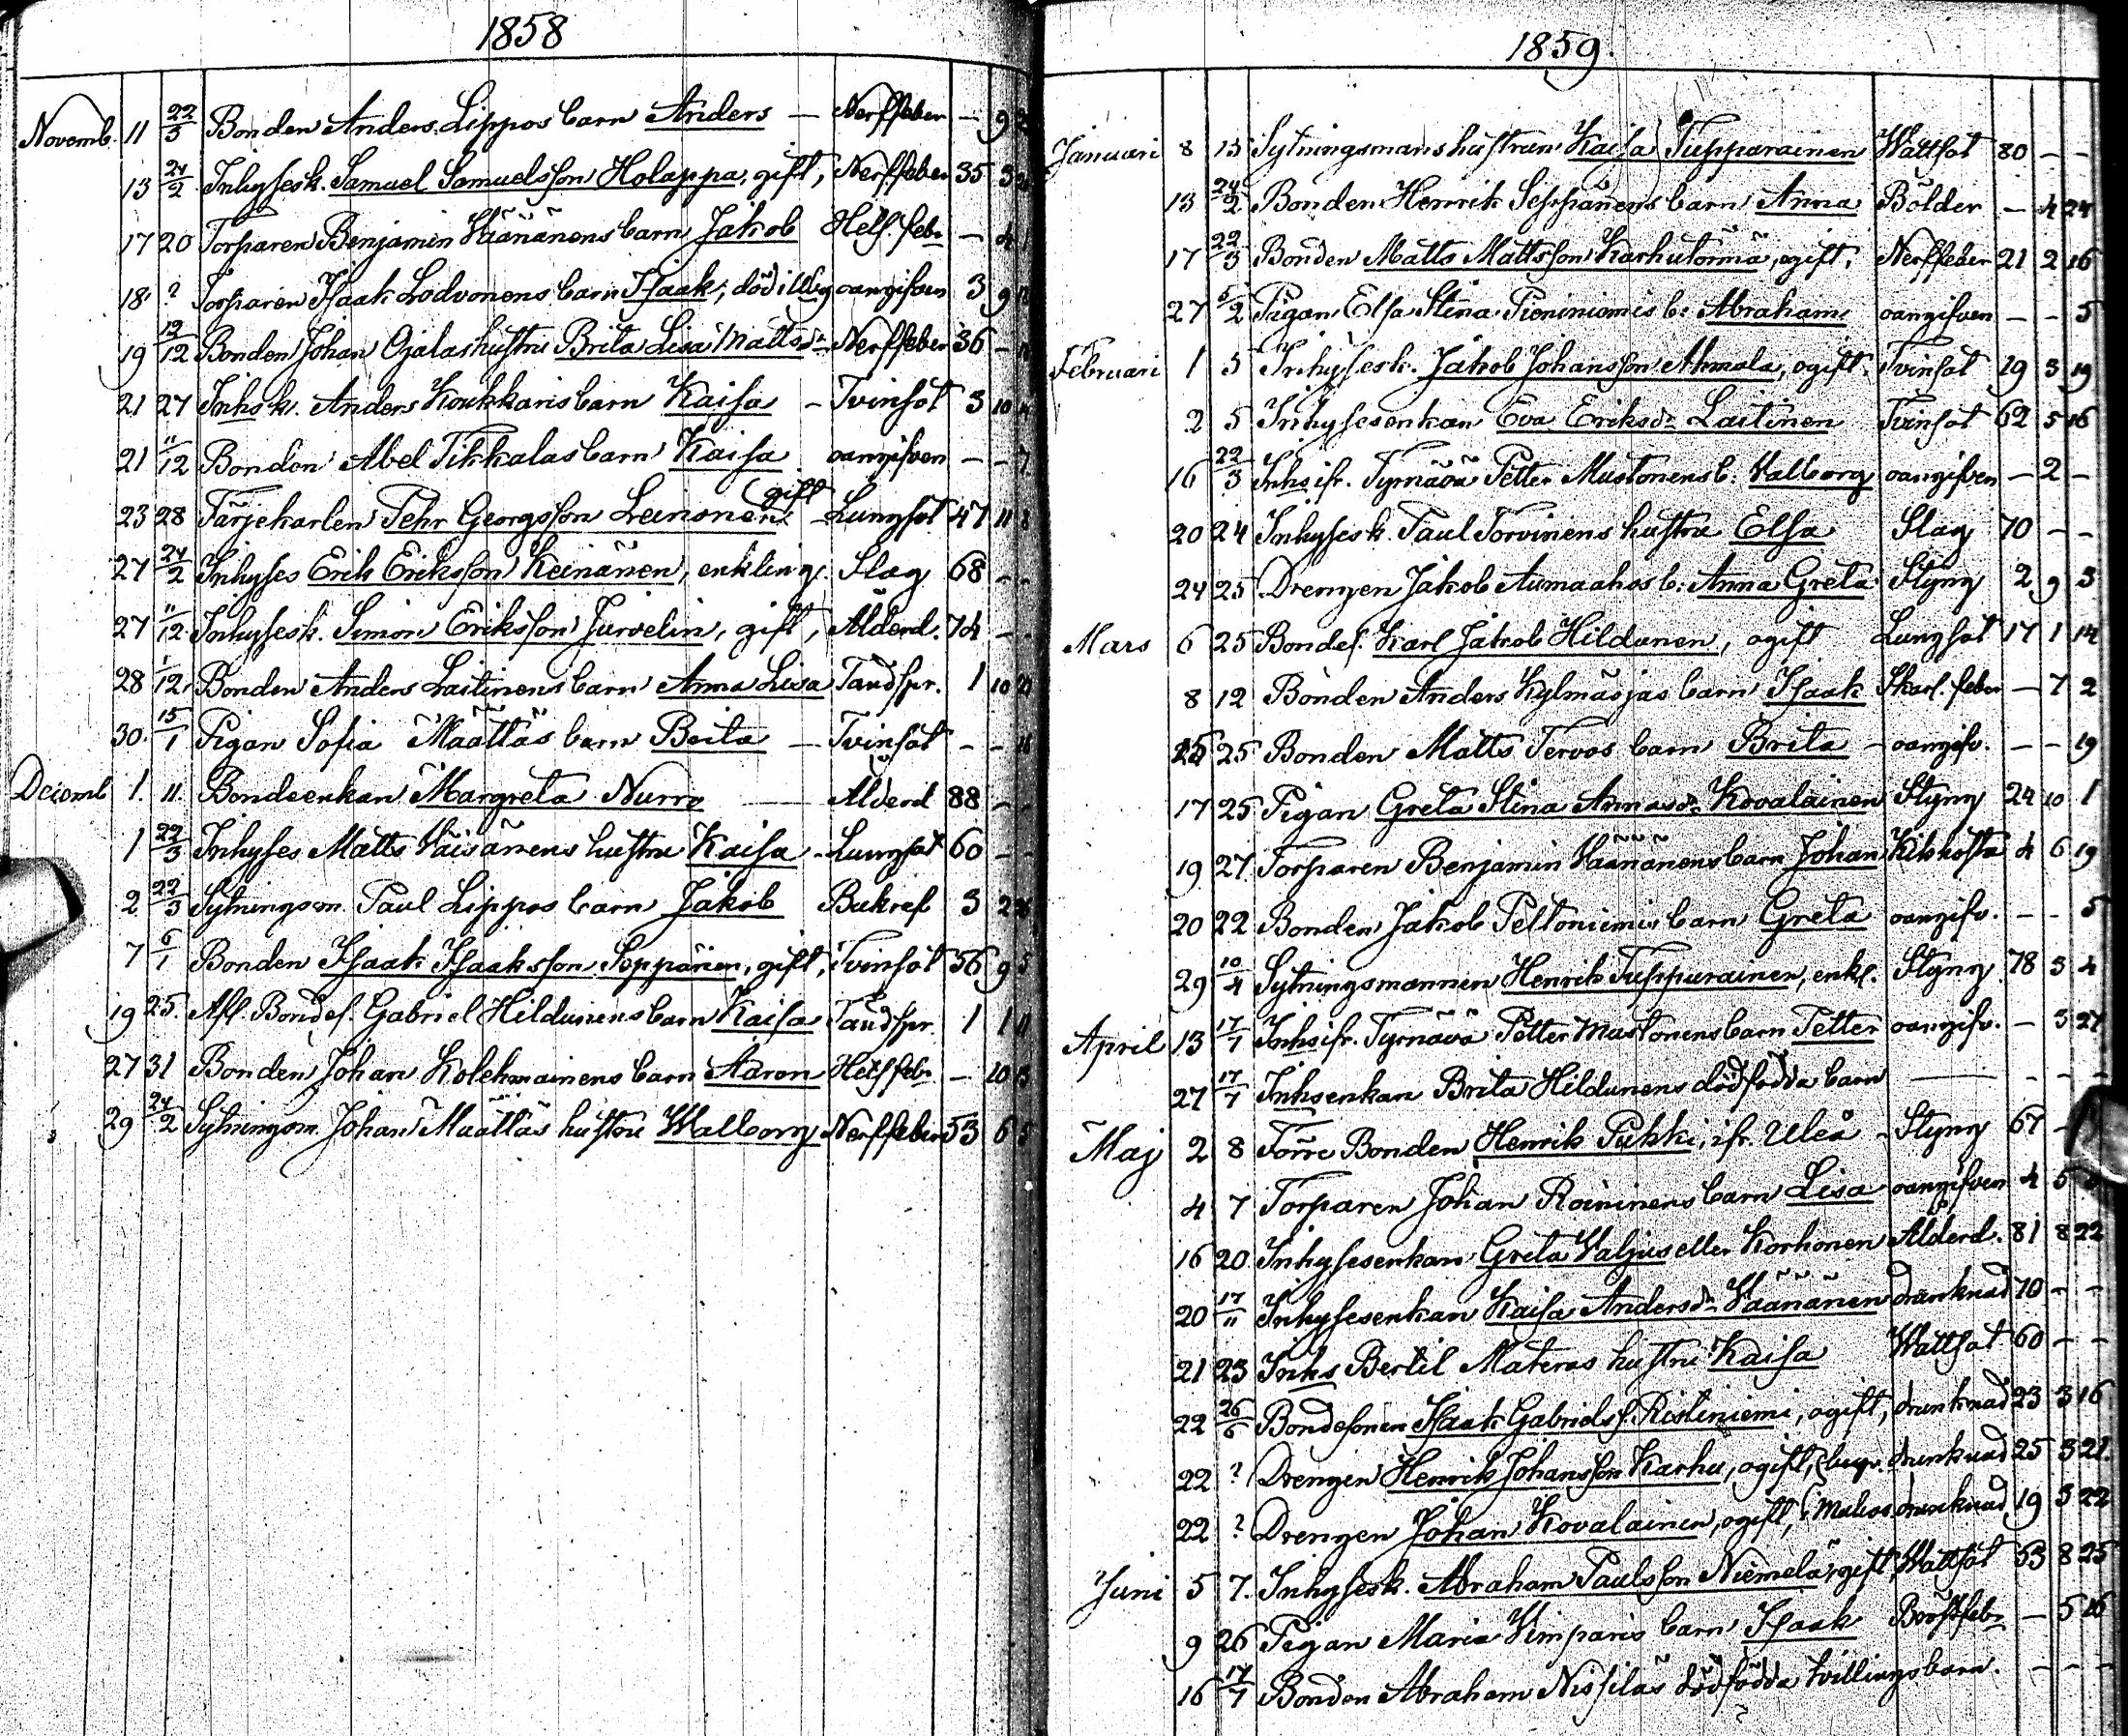 1858
Novemb. 11 22/3 Bonden Anders Lippos barn Anders — Nerffeber — 9
13 24/2 Inhysesk. Samuel Samuelsson Holappa, gift, Nerffeber 35 3
17 20 Torparen Benjamin Väänänens barn Jakob Hetf. febr — 4
18 ? Torparen Isaak Lodvonens barn Isaak, död i oangifven 3 9
19 12/12 Bonden Johan Ojalas hustru Brita Lisa Mattsdr Nerffeber 36 —
21 27 Inhsk. Anders Koukkaris barn Kaisa — Tvinsot 3 10
21 11/12 Bonden Abel Tikkalas barn Kaisa oangifven — — 7
23 28 Färjekarlen Pehr Georgsson Leinonen gift Lungsot 47 11
27 24/2 Inhyses Erik Eriksson Keinänen, enkling Slag 68 - -
27 11/12 Inhysesk. Simon Eriksson Jurvelin, gift, Ålderd. 74 - -
28 1/12 Bonden Anders Laitinens barn Anna Lisa Tandspr. 1 10
30. 15/1 Pigan Sofia Määttäs barn Brita — Tvinsot - -
Decemb 1. 11. Bondeenkan Margreta Nurro — Ålderd 88 - -
1 22/3 Inhyses Matts Väisänens hustru Kaisa Lungsot 60 - -
2 22/3 Sytningsm. Paul Lippos barn Jakob Bukref 3 2
7 6/1 Bonden Isaak Isaaksson Seppänen, gift, Tvinsot 56 9 5
19 25. Afl. Bondes. Gabriel Hildunens barn Kaisa Tandspr. 1 1 11
27 31 Bonden Johan Kolehmainens barn Aaron Hetsfebr — 10
29 24/2 Sytningsm. Johan Määttäs hustru Walborg Nerffeber 53 6 5
1859.
Januari 8 13 Sytningsmanshustrun Kaisa Tupparainen Wattsot 80 - -
13 24/2 Bonden Henrik Seppänens barn Anna Bölder — 4 24
17 22/3 Bonden Matts Mattsson Karhutörmä, ogift, Nerffeber 21 2 16
27 5/2 Pigan Elsa Stina Pieniniemis b: Abraham oangifven - - 5
Februari 1 5 Inhysesk. Jakob Johansson Ahmala, ogift, Tvinsot 19 3 19
2 5 Inhysesenkan Eva Eriksdr Laitinen Tvinsot 62 5 16
16 22/3 Inhs ifr. Tyrnävä Petter Mustonens b: Valborg oangifven — 2 —
20 24 Inhysesk. Paul Torvinens hustru Elsa Slag 70 - -
24 25 Drengen Jakob Aumaahos b: Anna Greta Styng 2 9 3
Mars 6 25 Bondes. Karl Jakob Hildunen, ogift Lungsot 17 1 14
8 12 Bonden Anders Kylmäojas barn Isaak Skarl. feber — 7 2
15 25 Bonden Matts Tervos barn Brita — oangifv. - - 19
17 25 Pigan Greta Stina Annasdr Kovalainen Styng 24 10 1
19 27 Torparen Benjamin Väänänens barn Johan Kikhosta 4 6 19
20 22 Bonden Jakob Peltoniemis barn Greta oangifv. - - 5
29 10/4 Sytningsmannen Henrik Tuppurainen, enkl. Styng. 78 3 4
April 13 17/7 Inhs ifr. Tyrnävä Petter Mustonens barn Petter oangifv. — 3 27
27 17/7 Inhsenkan Brita Hildunens dödfödda barn — - - -
Maj 2 8 Förre Bonden Henrik Pukki, ifr. Uleå — Styng 67 -
4 7 Torparen Johan Roininens barn Lisa oangifven 4 5
16 20 Inhysesenkan Greta Valjus eller Korhonen Ålderd. 81 8 22
20 17/11 Inhysesenkan Kaisa Andersdr Väänänen drunknad 70 - -
21 23 Inhs Bertil Materos hustru Kaisa Wattsot 60 - -
22 26/6 Bondesonen Isaak Gabrielss. Ristiniemi, ogift, drunknad 23 3 16
22 ? Drengen Henrik Johansson Karhu, ogift, (begr. drunknad 25 3 21.
22 ? Drengen Johan Kovalainen, ogift, (Muhos drunknad 19 3 22
Juni 5 7. Inhysesk. Abraham Paulsson Niemelä, gift, Wattsot 53 8 25
9 26 Pigan Maria Vimparis barn Isaak Bröstfebr — 5 16
16 17/7 Bonden Abraham Nissiläs dödfödda tvillingsbarn. - - -